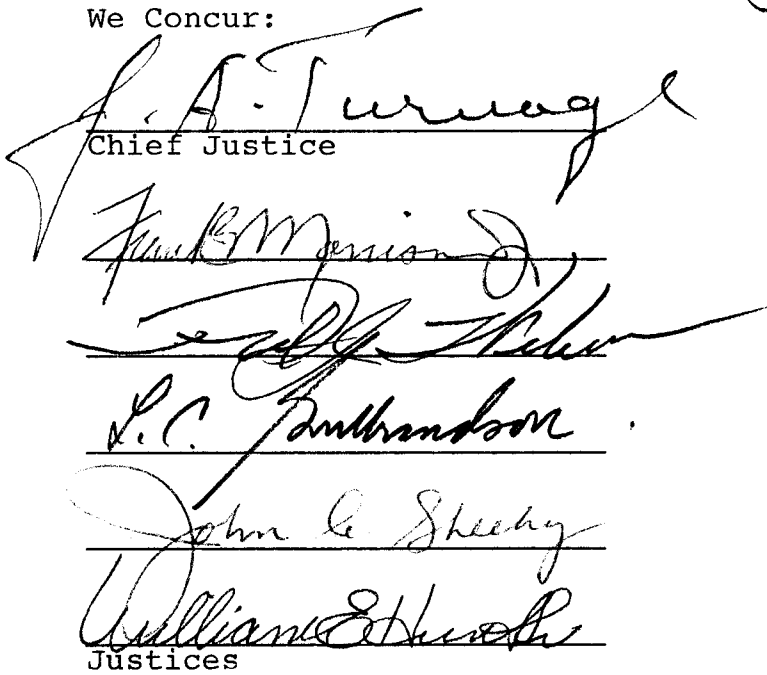 We Concur:
J. A. Turnage
Chief Justice
Frank B Morrison Jr
L. C. Gulbrandson
John C. Sheehy
William E Hunt Sr
Justices